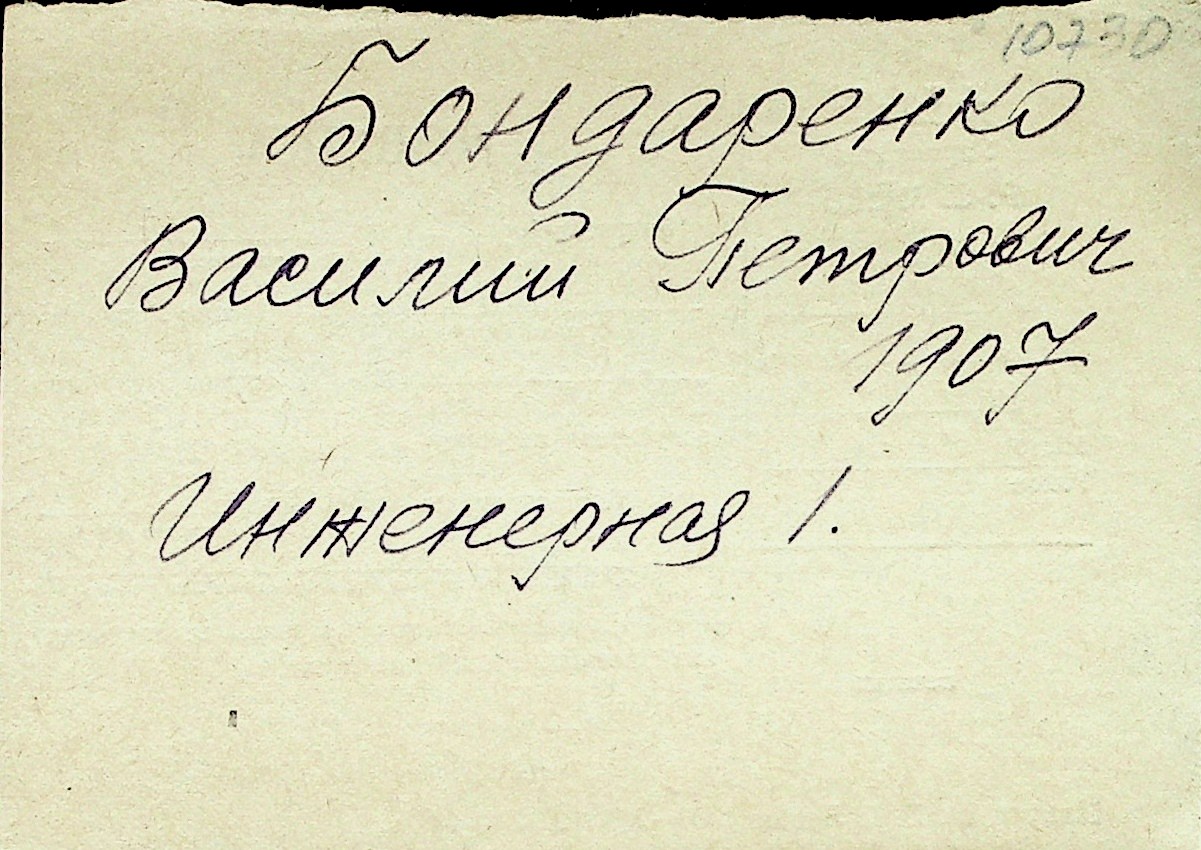 1073D
Бондаренко
Василий Петрович
1907
Инженерная 1.